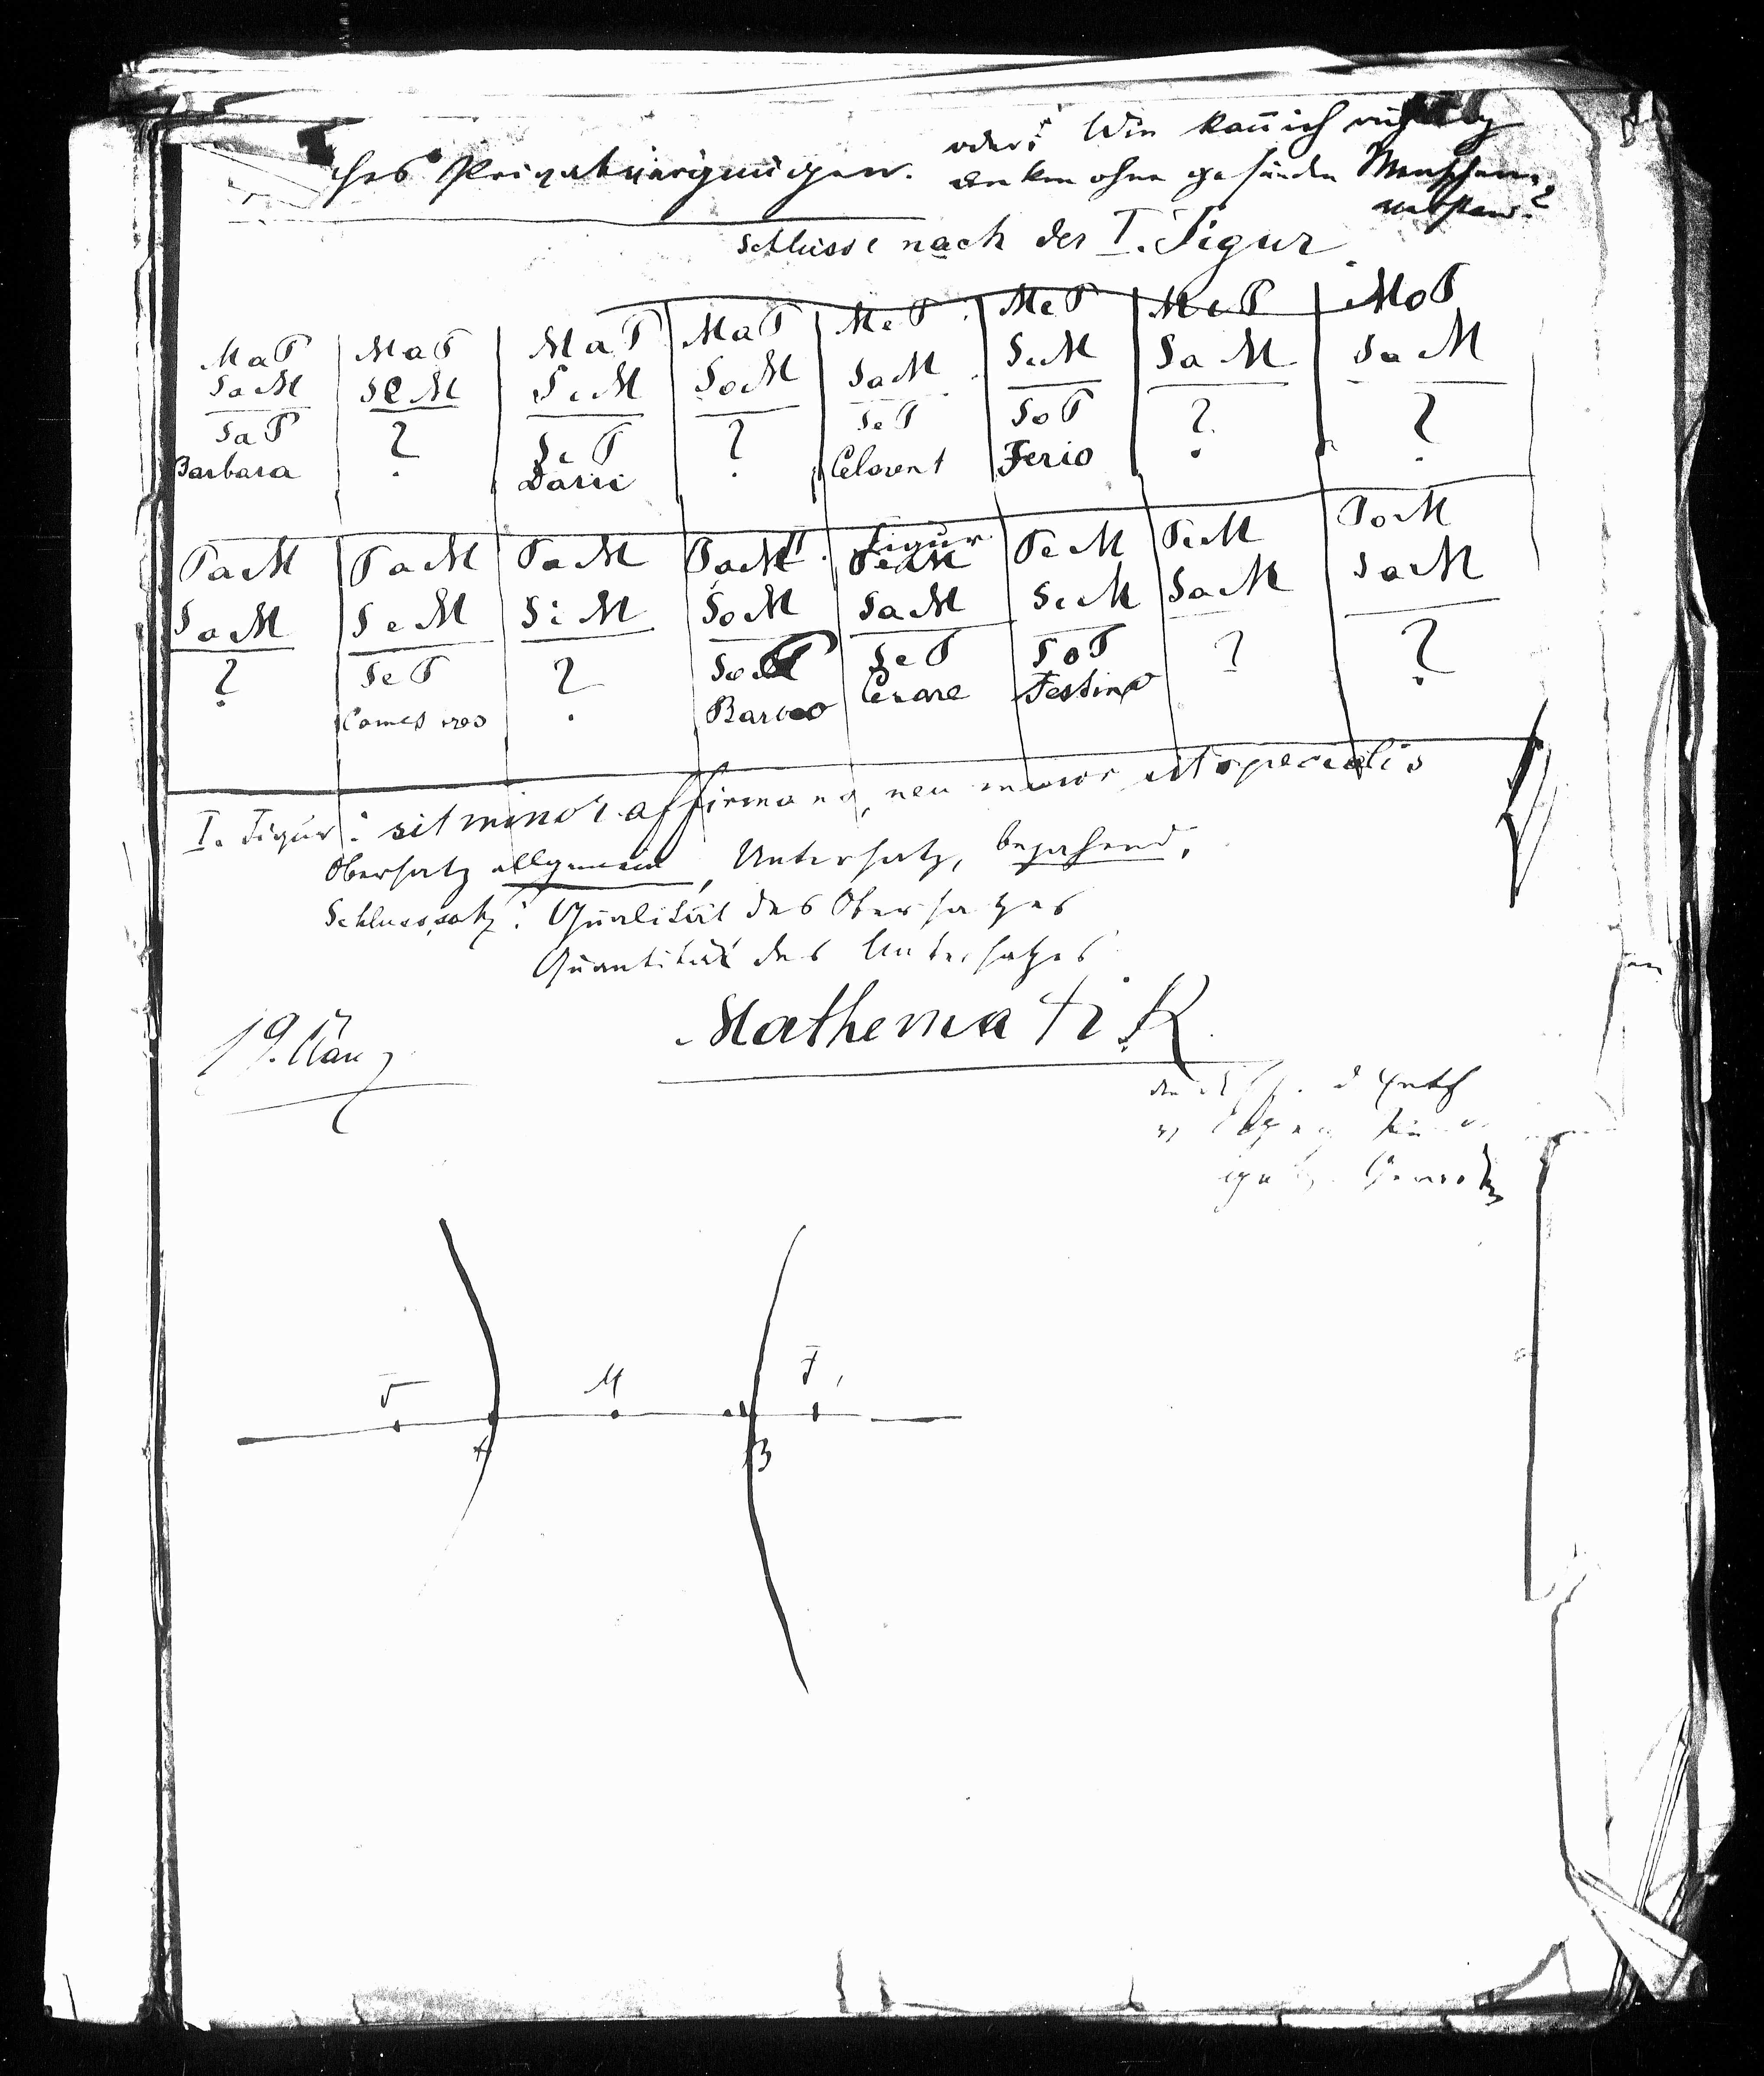 oder: Wie kann ich richtig
hes Privatvergnügen. denken ohne gesunden Menschen-
verstand?
Schlüsse nach der I. Figur.
MaP MaP MaP MaP MeP MeP MiP MoP
SaM SeM SiM SoM SaM SiM SaM SaM
SaP ? SiP ? SeP SoP ? ?
Barbara Darii Celarent Ferio
II. Figur
PaM PaM PaM PaM PeM PeM PiM PoM
SaM SeM SiM SoM SaM SiM SaM SaM
? SeP ? SoP SeP SoP ? ?
Camestres Baroco Cesare Festino
I. Figur: sit minor affirmans, neu maior sit specialis
Obersatz allgemein, Untersatz, bejahend.
Schlusssatz: Qualität des Obersatzes
Quantität des Untersatzes
19. März
Mathematik
F M F,
A B